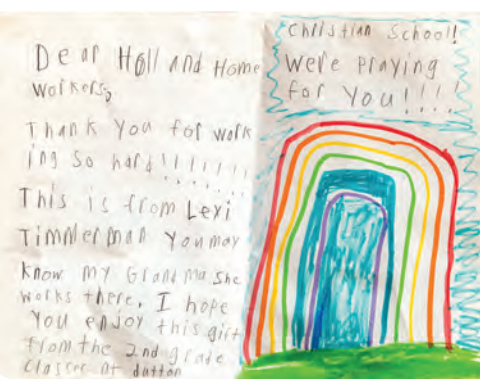 Dear Holland Home
workers,
Thank you for work
ing so hard!!!!!!!
This is from Lexi
Timmerman You may
know my Grandma she
works there, I hope
You enjoy this gift
from the 2nd grade
classes at dutton
Christian School!
We're praying
for You!!!!